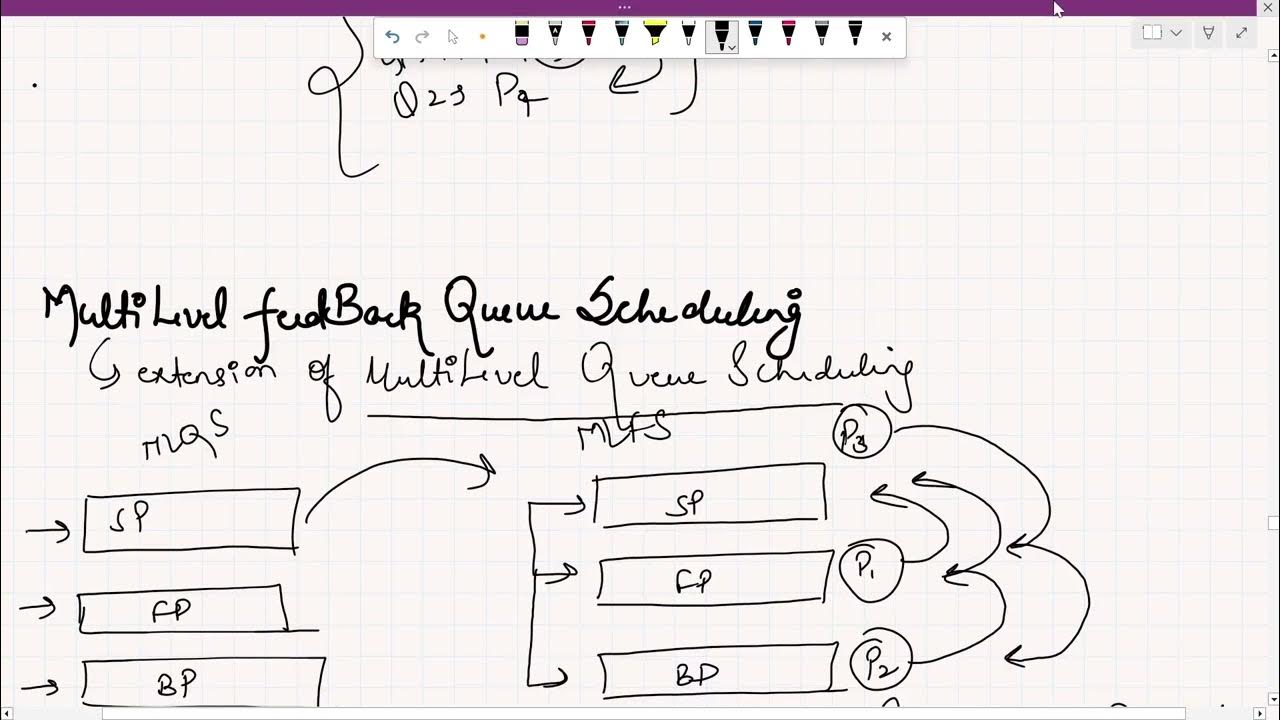 Q2s P4
MultiLevel feedBack Queue Scheduling
↳ extension of MultiLevel Queue Scheduling
MLQS
MLFS
P3
SP
SP
P1
FP
FP
P2
BP
BP